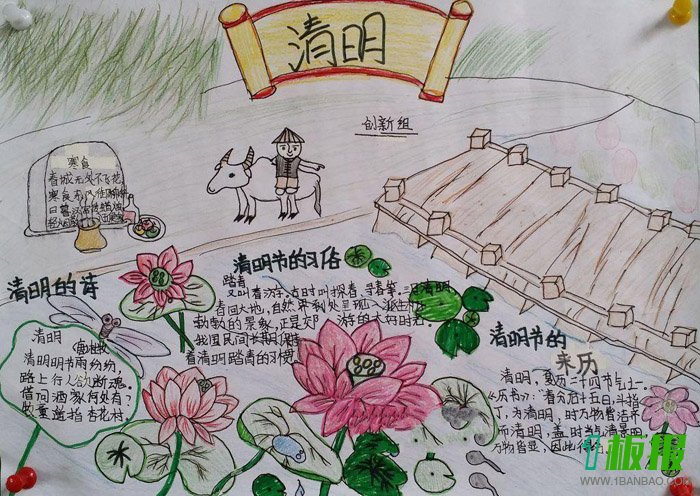 清明
创新组
寒食
春城无处不飞花
清明的诗
清明
清明时节雨纷纷,
路上行人欲断魂。
借问酒家何处有?
牧童遥指杏花村。
清明节的习俗
踏青
又叫春游。古时叫探春、寻春等。三月清明,
春回大地,自然界到处呈现一派生机
勃勃的景象,正是郊游的大好时光。
我国民间长期保持
着清明踏青的习惯
清明节的
来历
清明,夏历二十四节气之一
历书》:“春分后十五日,斗指
丁,为清明,时万物皆洁齐
而清明,盖时当气清景明,
万物皆显,因此得名
板报
WWW.1BANBAO.COM